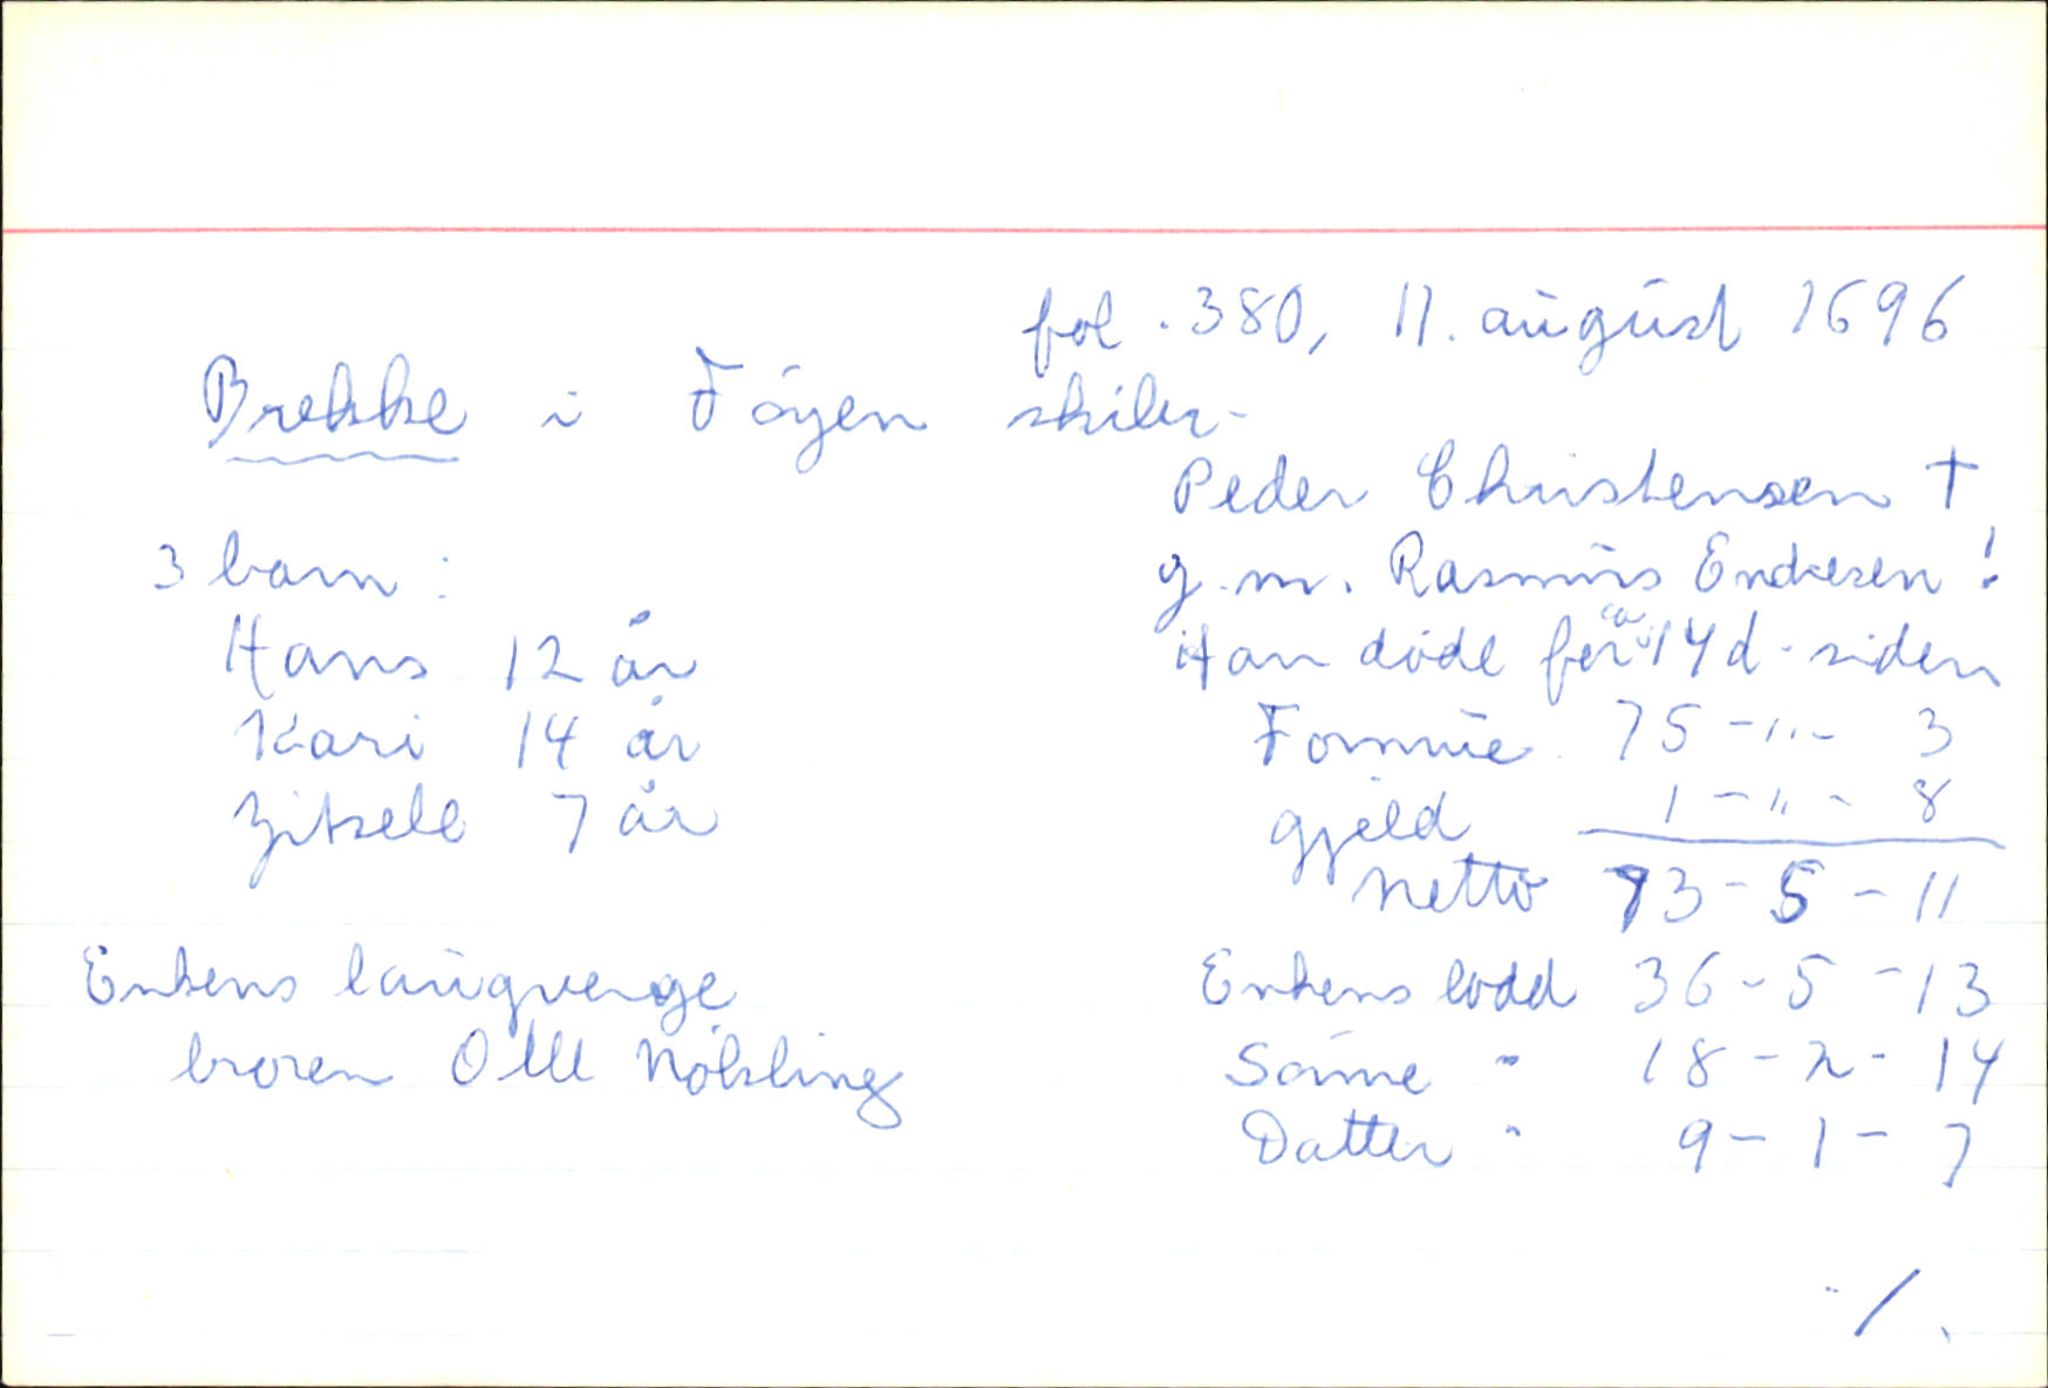 fol. 380, 11. august 1696
Brekke i Föyen skiber-
Peder Christensen †
3 barn: g.m. Rasmus Endresen!
Hans 12 år Han døde for ca 14 d. siden
Kari 14 år Formue 75 - " - 3
Zitsele 7 år gjeld 1 - " - 8
Netto 73 - 5 - 11
Enkens laugverge Enkens lodd 36 - 5 - 13
broren Olle Nökling Sønne " 18 - 2 - 14
Datter " 9 - 1 - 7
./.